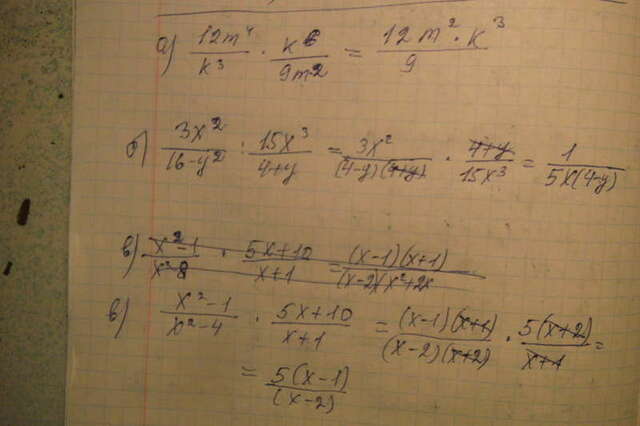 а) 12m⁴/k³ · k⁶/9m² = 12m²·k³/9
б) 3x²/16-y² : 15x³/4+y = 3x²/(4-y)(4+y) · 4+y/15x³ = 1/5x(4-y)
в) x²-1/x²-8 · 5x+10/x+1 = (x-1)(x+1)/(x-2)(x²+2x
в) x²-1/x²-4 · 5x+10/x+1 = (x-1)(x+1)/(x-2)(x+2) · 5(x+2)/x+1 =
= 5(x-1)/(x-2)